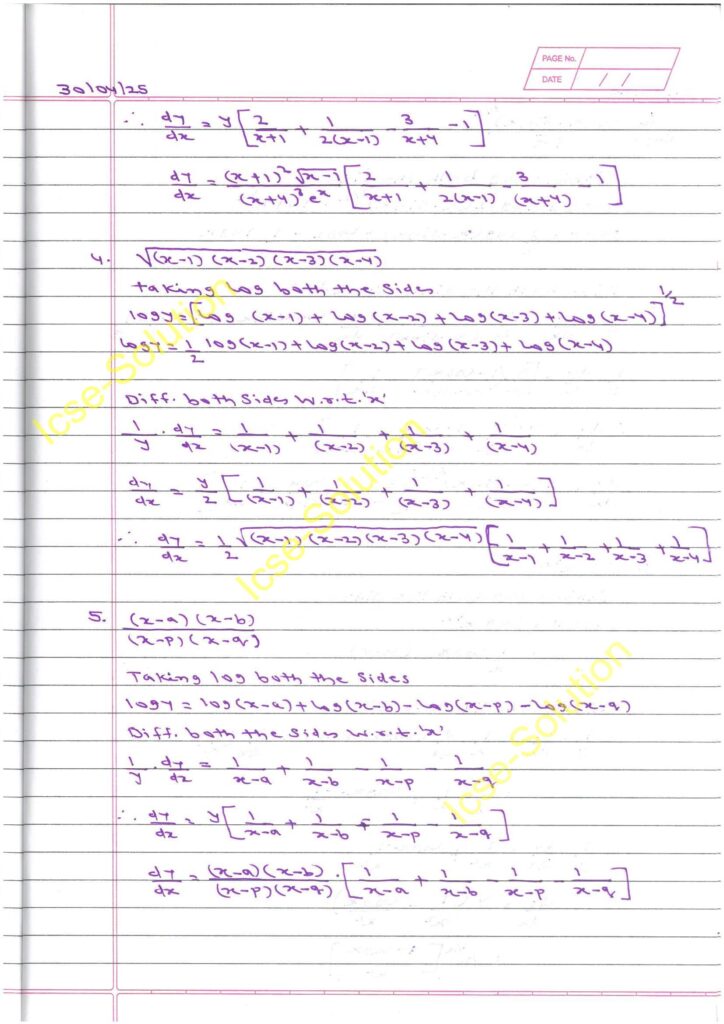 PAGE No.
DATE / /
30/04/25
∴ dy/dx = y [2/(x+1) + 1/(2(x-1)) - 3/(x+4) - 1]
dy/dx = (x+1)² √(x-1) / (x+4)³ eˣ [2/(x+1) + 1/(2(x-1)) - 3/(x+4) - 1]
4. √((x-1) (x-2) (x-3) (x-4))
Taking log both the sides
logy = [log (x-1) + log(x-2) + log(x-3) + log(x-4)]^1/2
logy = 1/2 log(x-1) + log(x-2) + log(x-3) + log(x-4)
Diff. both sides w.r.t. 'x'
1/y . dy/dx = 1/(x-1) + 1/(x-2) + 1/(x-3) + 1/(x-4)
dy/dx = y/2 [1/(x-1) + 1/(x-2) + 1/(x-3) + 1/(x-4)]
∴ dy/dx = 1/2 √((x-1) (x-2) (x-3) (x-4)) [1/(x-1) + 1/(x-2) + 1/(x-3) + 1/(x-4)]
5. (x-a) (x-b) / (x-p) (x-q)
Taking log both the sides
logy = log(x-a) + log(x-b) - log(x-p) - log(x-q)
Diff. both the sides w.r.t. 'x'
1/y . dy/dx = 1/(x-a) + 1/(x-b) - 1/(x-p) - 1/(x-q)
∴ dy/dx = y [1/(x-a) + 1/(x-b) - 1/(x-p) - 1/(x-q)]
dy/dx = (x-a)(x-b) / (x-p)(x-q) . [1/(x-a) + 1/(x-b) - 1/(x-p) - 1/(x-q)]
Icse-Solution
Icse-Solution
Icse-Solution